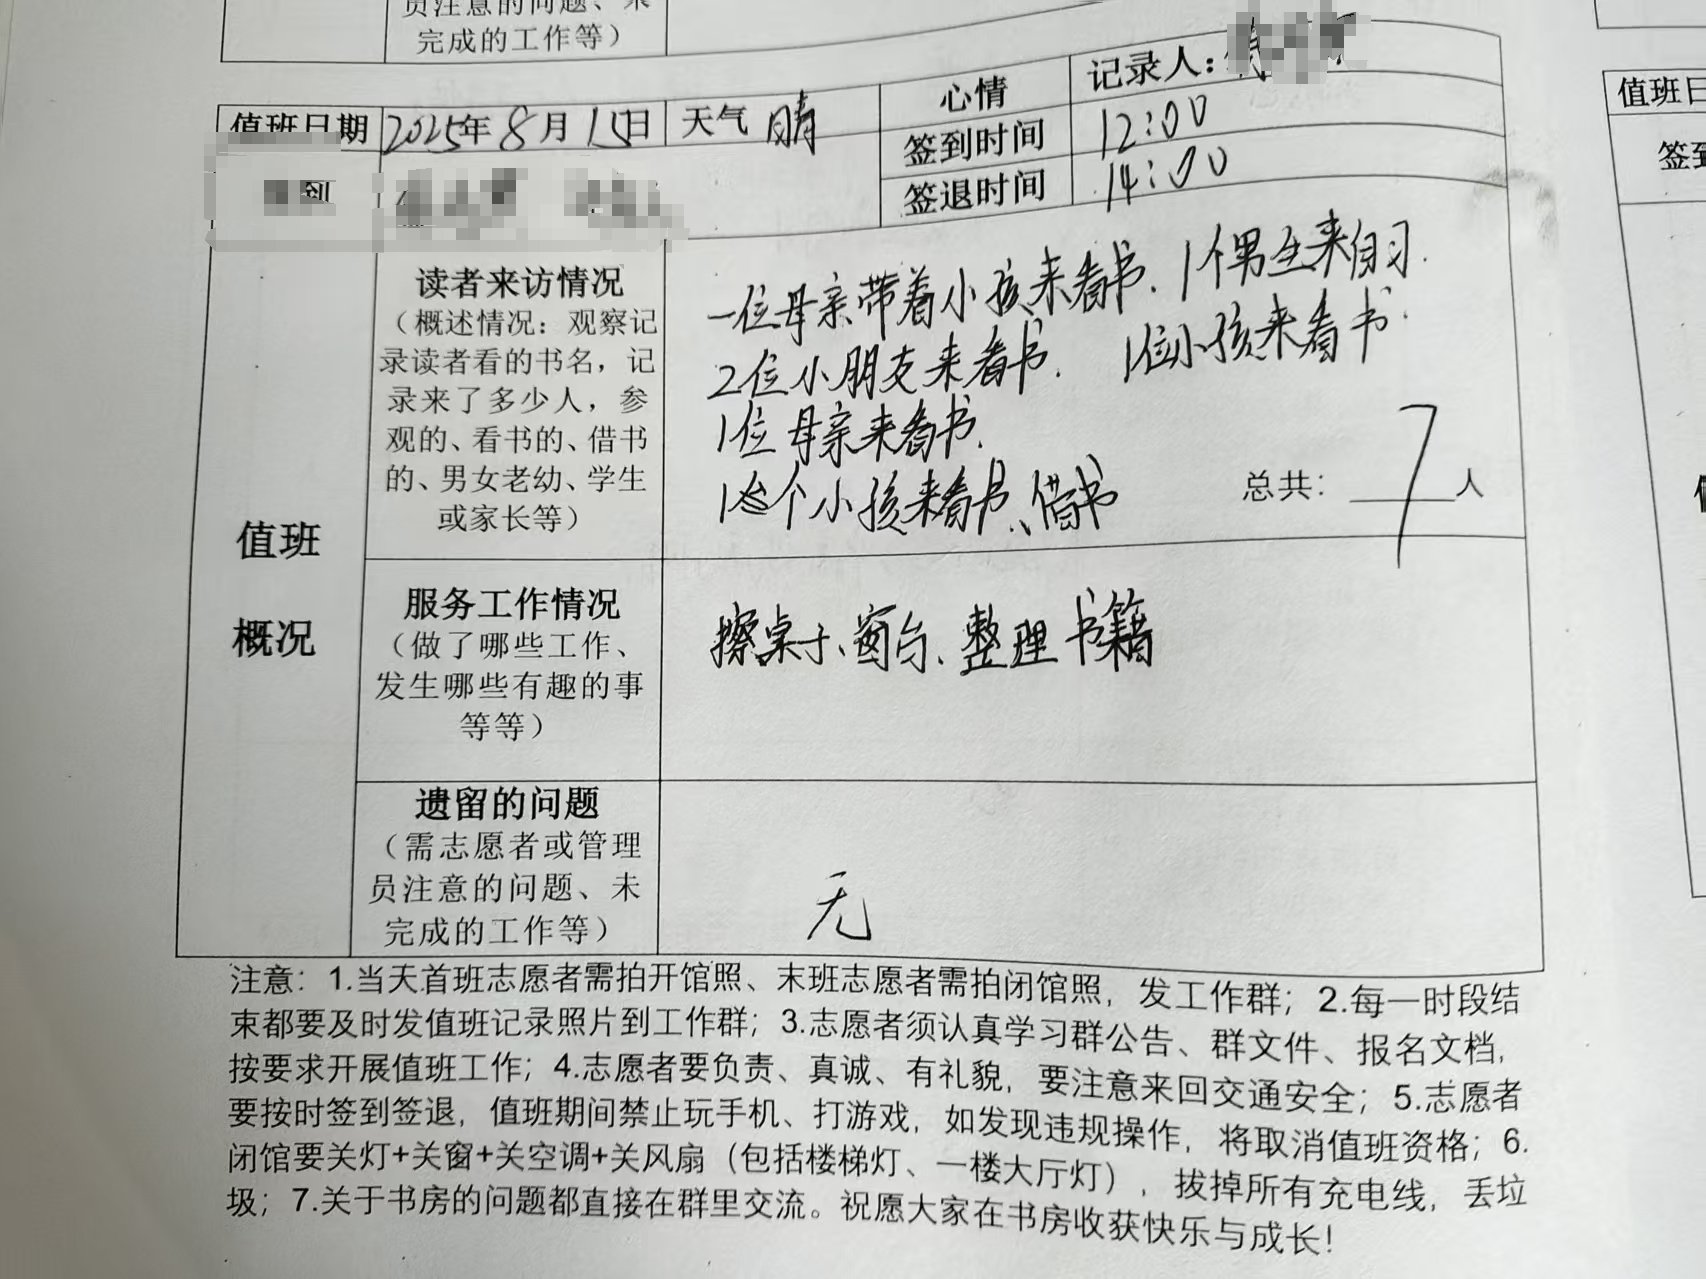 员注意的问题、未
完成的工作等）
值班日期 2025年8月15日 天气 晴 心情 记录人：
签到时间 12:00
签退时间 14:00
到
值班
概况
读者来访情况
（概述情况：观察记
录读者看的书名，记
录来了多少人，参
观的、看书的、借书
的、男女老幼、学生
或家长等）
一位母亲带着小孩来看书. 1个男生来自习.
2位小朋友来看书. 1位小孩来看书.
1位母亲来看书.
1个小孩来看书、借书
总共：7人
服务工作情况
（做了哪些工作、
发生哪些有趣的事
等等）
擦桌子、窗台、整理书籍
遗留的问题
（需志愿者或管理
员注意的问题、未
完成的工作等）
无
注意：1.当天首班志愿者需拍开馆照、末班志愿者需拍闭馆照，发工作群；2.每一时段结
束都要及时发值班记录照片到工作群；3.志愿者须认真学习群公告、群文件、报名文档，
按要求开展值班工作；4.志愿者要负责、真诚、有礼貌，要注意来回交通安全；5.志愿者
要按时签到签退，值班期间禁止玩手机、打游戏，如发现违规操作，将取消值班资格；6.
闭馆要关灯+关窗+关空调+关风扇（包括楼梯灯、一楼大厅灯），拔掉所有充电线，丢垃
圾；7.关于书房的问题都直接在群里交流。祝愿大家在书房收获快乐与成长！
值班日
签到